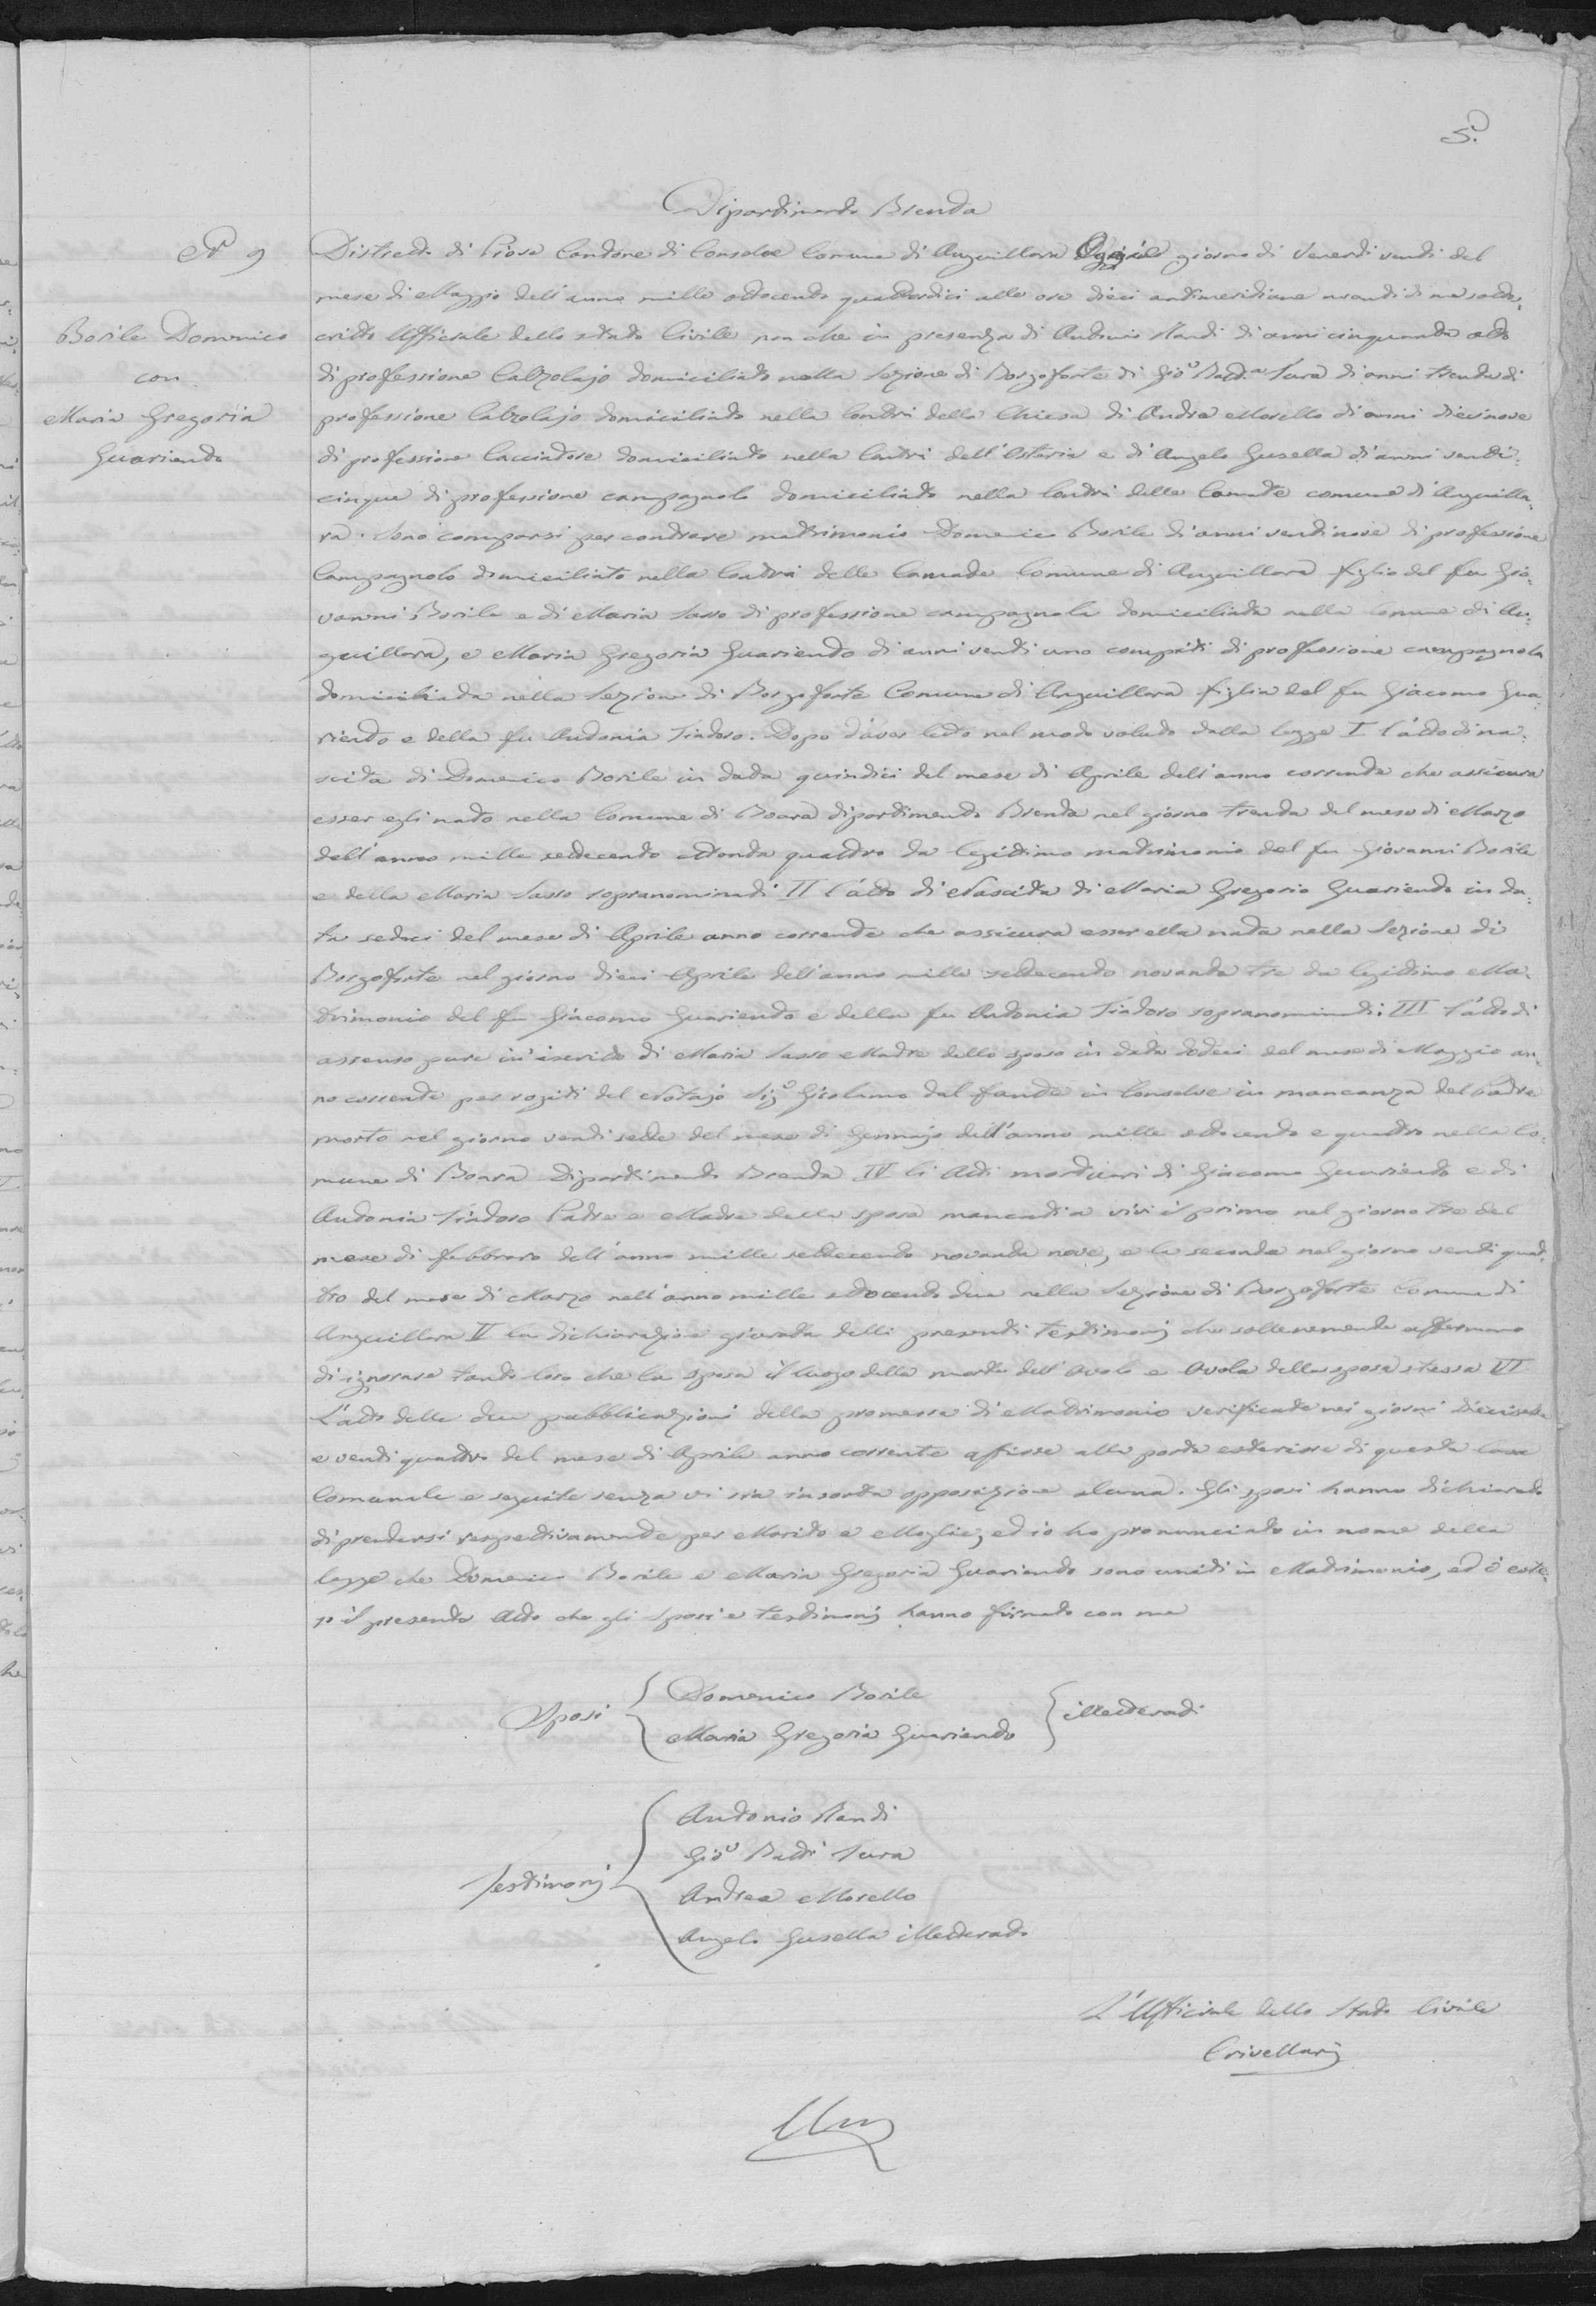 5.
Dipartimento Brenta
N° 9
Borile Domenico
con
Maria Gregoria
Guariento
Distretto di Piove Cantone di Conselve Comune di Anguillara Oggi giorno di Venerdì venti del
mese di Maggio dell'anno mille ottocento quattordici alle ore dieci antimeridiane avanti di me sottos-
critto Ufficiale dello stato Civile non che in presenza di Antonio Randi di anni cinquanta otto
di professione Calzolajo domiciliato nella Sezione di Borgoforte di Gio. Batt.a Sura di anni trenta di
professione Calzolajo domiciliato nella Contrà della Chiesa di Andrea Morello di anni diecinove
di professione Cacciatore domiciliato nella Contrà dell'Osteria e di Angelo Gusella di anni venti-
cinque di professione campagnolo domiciliato nella Contrà delle Canate comune d'Anguilla-
ra. Sono comparsi per contrare matrimonio Domenico Borile di anni ventinove di professione
Campagnolo domiciliato nella Contrà delle Canate Comune di Anguillara figlio del fu Gio-
vanni Borile e di Maria Sasso di professione campagnola domiciliata nella Comune di An-
guillara, e Maria Gregoria Guariento di anni venti uno compiti di professione campagnola
domiciliata nella Sezione di Borgoforte Comune di Anguillara figlia del fu Giacomo Gua-
riento e della fu Antonia Tiatoro. Dopo d'aver letto nel modo voluto dalla legge I l'atto di na-
scita di Domenico Borile in data quindici del mese di Aprile dell'anno corrente che assicura
esser egli nato nella Comune di Boara dipartimento Brenta nel giorno trenta del mese di Marzo
dell'anno mille settecento ottanta quattro da legittimo matrimonio del fu Giovanni Borile
e della Maria Sasso sopranominati II l'atto di Nascita di Maria Gregoria Guariento in da-
ta sedici del mese di Aprile anno corrente che assicura esser ella nata nella Sezione di
Borgoforte nel giorno dieci Aprile dell'anno mille settecento novanta tre da legittimo Ma-
trimonio del fu Giacomo Guariento e della fu Antonia Tiatoro sopranominati: III l'atto di
assenso pure in iscritto di Maria Sasso Madre dello sposo in data dodeci del mese di Maggio an-
no corrente per rogiti del Notajo Sig. Girolamo dal fante in Conselve in mancanza del Padre
morto nel giorno venti sette del mese di Gennajo dell'anno mille ottocento e quattro nella Co-
mune di Boara Dipartimento Brenta IV li Atti mortuari di Giacomo Guariento e di
Antonia Tiatoro Padre e Madre della sposa mancati a vivi il primo nel giorno tre del
mese di febbraro dell'anno mille settecento novanta nove, e la seconda nel giorno venti quat-
tro del mese di Marzo nell'anno mille ottocento due nella Sezione di Borgoforte Comune di
Anguillara V la dichiarazione giurata delli presenti testimonj che sollenemente affermano
di ignorare tanto loro che la sposa il luogo della morte dell'Avolo e Avola della sposa stessa VI
L'atto delle due pubblicazioni della promessa di Matrimonio verificate nei giorni diecisette
e venti quattro del mese di Aprile anno corrente affisse alla porta esteriore di questa Casa
Comunale e seguite senza vi sia insorta opposizione alcuna. Gli sposi hanno dichiarato
di prendersi respettivamente per Marito e Moglie, ed io ho pronunciato in nome della
legge che Domenico Borile e Maria Gregoria Guariento sono uniti in Matrimonio, ed è este-
so il presente Atto che gli Sposi e testimonj hanno firmato con me
Sposi { Domenico Borile
Maria Gregoria Guariento } illetterati
Testimonj { Antonio Randi
Gio. Batt. Sura
Andrea Morello
Angelo Gusella illetterato
L'Ufficiale dello Stato Civile
Crivellarj